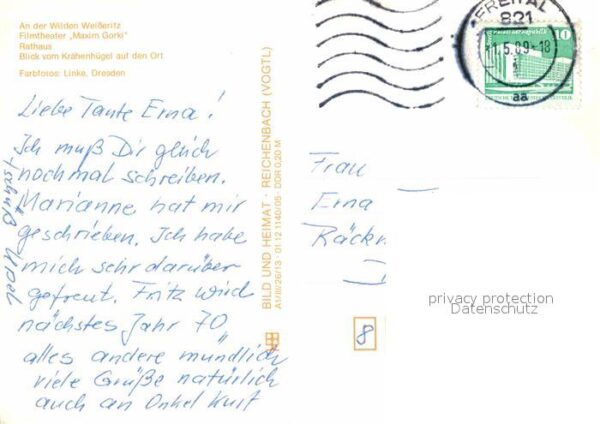 An der Wilden Weißeritz
Filmtheater „Maxim Gorki"
Rathaus
Blick vom Krähenhügel auf den Ort
Farbfotos: Linke, Dresden
Liebe Tante Erna!
Ich muß Dir gleich
nochmal schreiben.
Marianne hat mir
geschrieben. Ich habe
mich sehr darüber
gefreut. Fritz wird
nächstes Jahr 70
alles andere mündlich
viele Grüße natürlich
auch an Onkel Kurt
BILD UND HEIMAT · REICHENBACH (VOGTL)
A1/III/26/13 · 01 12 1140/05 · DDR 0,20 M
FREITAL
821
1.5.89-18
aa
10
Frau
Erna
privacy protection
Datenschutz
8